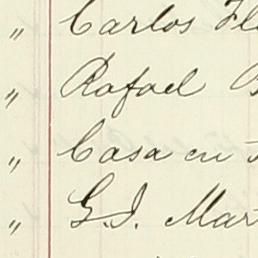 " Carlos Fl
" Rafael
" Casa en
" G.J. Mar